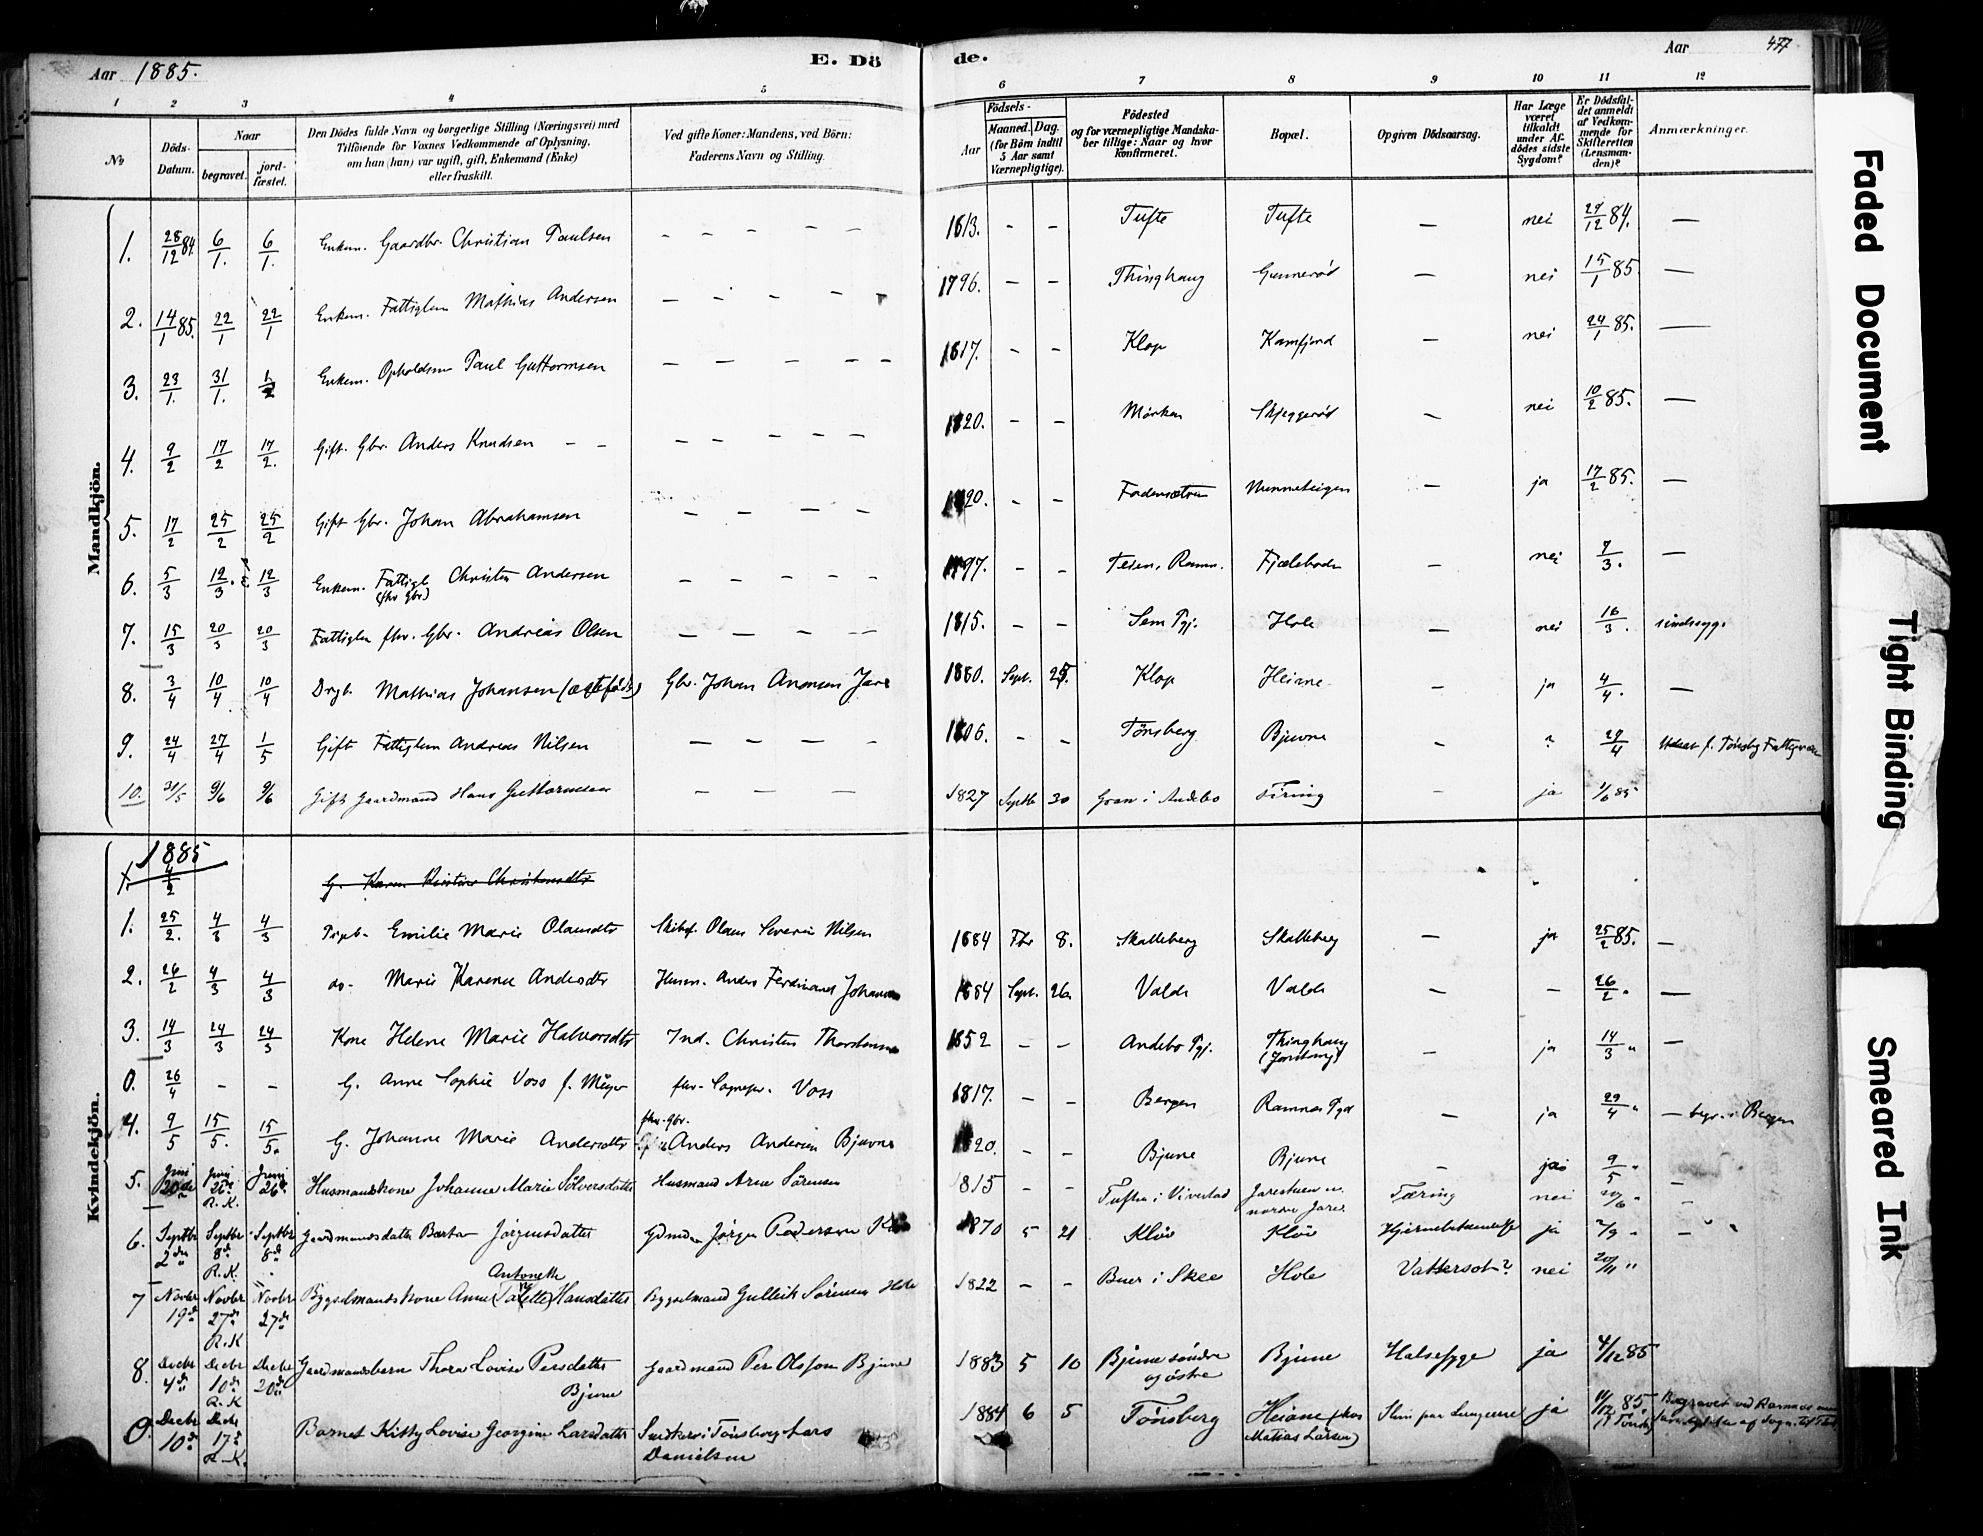 Aar 1885.
E. Dö
de.
Aar
477
1 2 3 4 5 6 7 8 9 10 11 12
No
Döds-Datum.
Naar
begravet.
jord-fæstet.
Den Dödes fulde Navn og borgerlige Stilling (Næringsvei) med
Tilföiende for Voxnes Vedkommende af Oplysning,
om han (hun) var ugift, gift, Enkemand (Enke)
eller fraskilt.
Ved gifte Koner: Mandens, ved Börn:
Faderens Navn og Stilling.
Födsels-
Aar
Maaned. Dag.
(for Börn indtil
5 Aar samt
Værnepligtige).
Födested
og for værnepligtige Mandska-
ber tillige: Naar og hvor
konfirmeret.
Bopæl.
Opgiven Dödsaarsag.
Har Læge
været
tilkaldt
under Af-
dödes sidste
Sygdom?
Er Dödsfal-
det anmeldt
af Vedkom-
mende for
Skifteretten
(Lensman-
den)?
Anmærkninger.
Mandkjön.
1. 28/12 84. 6/1. 6/1. Enkem. Gaardbr. Christian Paulsen – – – – – 1813. – – Tufte Tufte — nei 29/12 84. —
2. 14/1 85. 22/1 22/1 Enkem. Fattiglem Mathias Andersen – – – – – 1796. – – Thinghaug Gunnerød — nei 15/1 85. —
3. 23/1. 31/1. 1/2 Enkem. Opholdsm Paul Guttormsen – – – – – 1817. – – Klop Kamfjord — nei 24/1 85. —
4. 9/2 17/2 17/2. Gift. Gbr. Anders Knudsen – – – – – – – 1820. – – Mörken Skjeggerød — nei 10/2 85. —
5. 17/2 25/2 25/2 Gift Gbr. Johan Abrahamsen – – – – 1820. – – Nunneteigen — ja 17/2 85. —
6. 5/3 12/3. 12/3 Enkem. Fattigl (fhv Gbr) Christen Andersen – – – – – 1797. – – Teien, Ramn. Fjæleboden — nei 7/3. —
7. 15/3 20/3 20/3 Fattiglem fhv. Gbr. Andreas Olsen – – – – 1815. – – Sem Pgj. Hole — nei 16/3. sindssyg.
8. 3/4 10/4 10/4 Drgb. Mathias Johansen (ægtefødt) Gbr. Johan Anonsen Jare 1880. Sept. 25. Klop Heiane — ja 4/4. —
9. 24/4 27/4 1/5 Gift Fattiglem Andreas Nilsen – – – – 1806. – – Tønsberg Bjuvne — ? 29/4 Udsat f. Tönsbg Fattigvæsen
10. 31/5 9/6 9/6 Gift Gaardmand Hans Guttormsen – – – 1827 Septbr 30 Gran i Andebo Firing — ja 1/6 85
Kvindekjön.
1885
1. 4/2 G. Karen Kirstine Christensdtr
1. 25/2. 4/3 4/3 Pigeb. Emilie Marie Olausdtr Skibsf. Olaus Severin Nilsen 1884 Fbr 8. Skalleberg Skalleberg — ja 25/2 85. —
2. 26/2 4/3 4/3 do. Marie Karence Andersdtr Husm. Anders Ferdinand Johannes 1884 Sept. 26. Valde Valde — – 26/2. —
3. 14/3 24/3 24/3 Kone Helene Marie Halvorsdtr Ind. Christen Thorstensen 1852 – – Andebo Pgj. Thinghaug — ja 14/3 " —
0. 26/4 – – G. Anne Sophie Voss f. Meyer fhv. Sognepr. Voss 1817. – – Bergen Ramnes Pgd — ja 29/4 " — begr. i Bergen
4. 9/5 15/5. 15/5. G. Johanne Marie Andersdtr fhv. Gbr. Anders Andersen Bjuvne 1820. – – Bjune Bjune — ja 9/5 " —
5. Juni 20de Juni 26de R.K. Juni 26de Husmandskone Johanne Marie Sölversdatter Husmand Arne Sörensen 1815 – – Tuften i Vivestad Jarestuen u. nordre Jare Tæring nei 20/6 " —
6. Septbr 2den Septbr 8de R.K. Septbr 8de Gaardmandsdatter Berta Jörgensdatter Gdmd. Jörgen Pedersen 1870 5 21 Klöv Klöv Hjernebetændelse ja 2/9 " —
7 Novbr 19de Novbr 27de R.K Novbr 27de Bygselmandskone Anne Antonette Hansdatter Bygselmand Gullik Sörensen Hole 1822 – – Buer i Skee Hole Vattersot? nei 20/11 "
8. Decbr 4de Decbr 10de R.K Decbr 20de Gaardmandsbarn Thora Lovise Persdatter Bjune Gaardmand Per Olsson Bjune 1883 5 10 Bjune söndre og östre Bjune Halsesyge ja 4/12 85
0. Decbr 10de Decbr 17de R.K. Barnet Kitty Lovise Georgine Larsdatter Snedker i Tönsberg Lars Danielsen 1884 6 5 Tönsberg Heiane (hos Matias Larsen) Slim paa Lungerne ja 11/12 85. (i Tönsb) Begravet ved Ramnes
Faded Document
Tight Binding
Smeared Ink